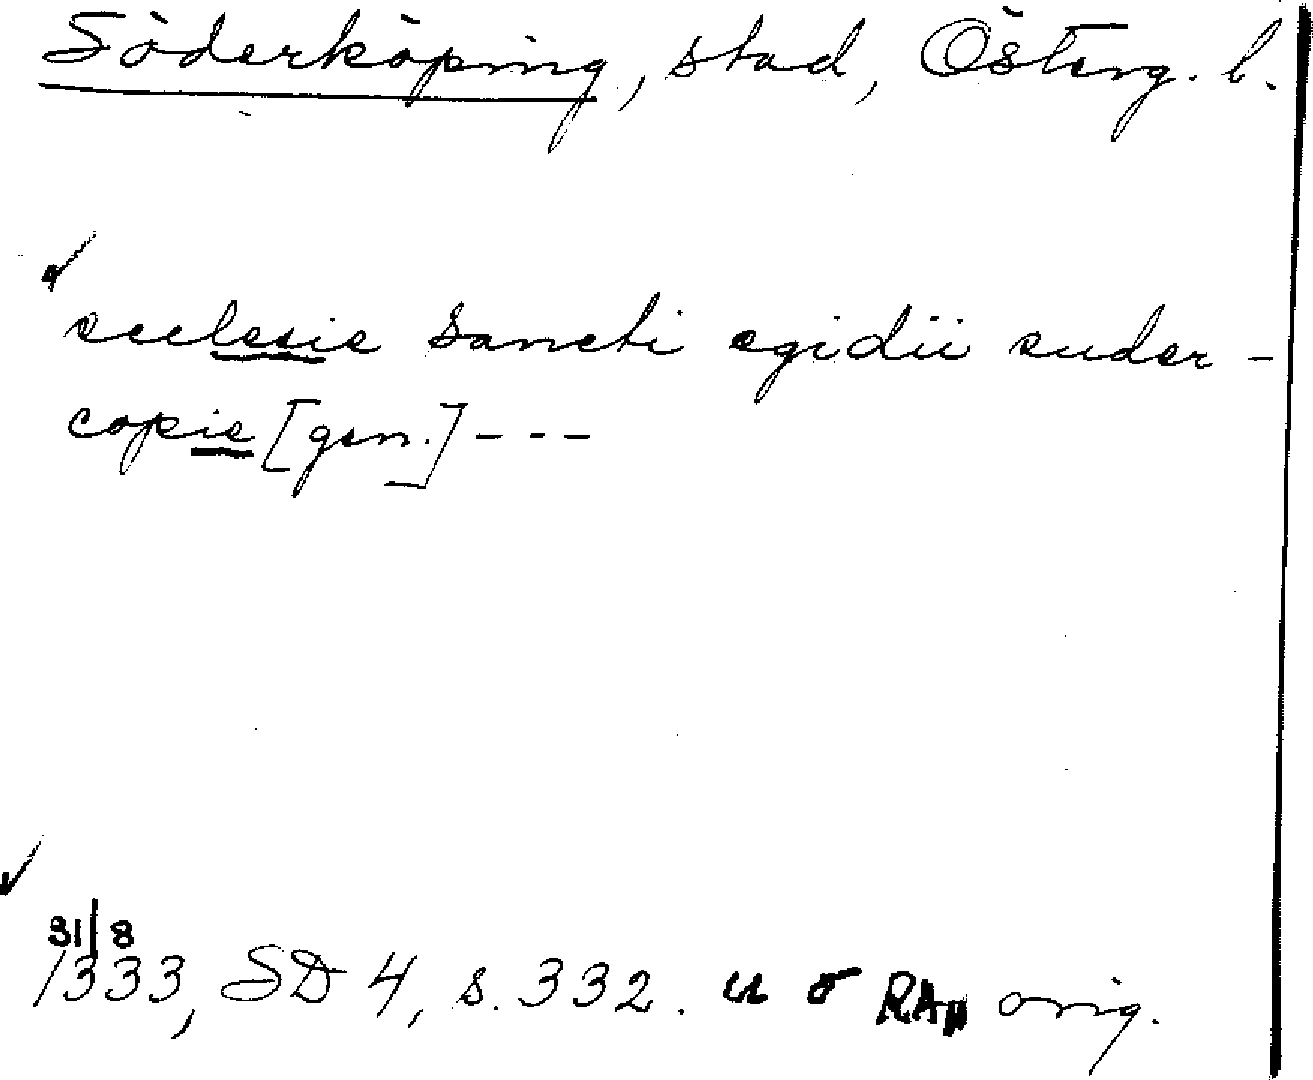 Söderköping, stad, Österg. l.
ecclesie sancti egidii suder-
copie [gen.] - - -
31/8
1333, SD 4, s. 332. u σ RAp orig.